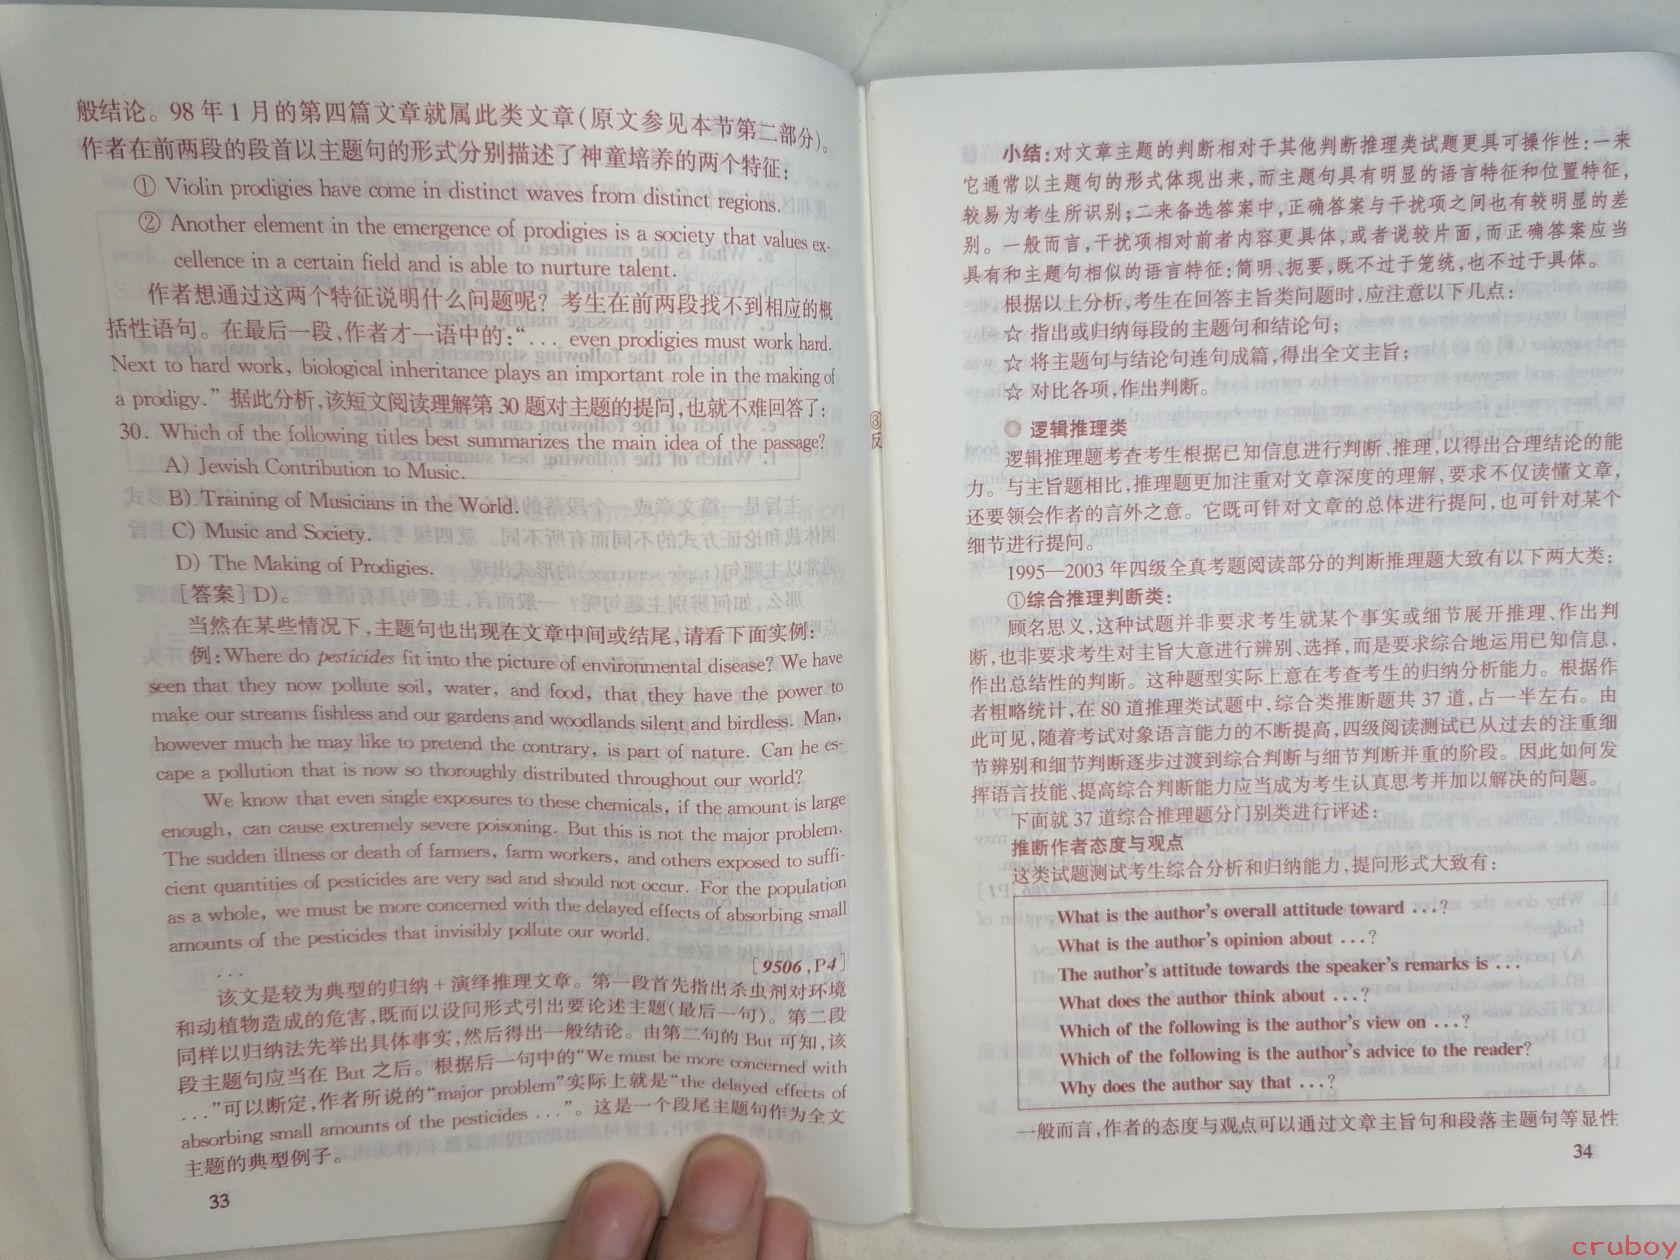 般结论。98 年 1 月的第四篇文章就属此类文章(原文参见本节第二部分)。
作者在前两段的段首以主题句的形式分别描述了神童培养的两个特征:
① Violin prodigies have come in distinct waves from distinct regions.
② Another element in the emergence of prodigies is a society that values ex-
cellence in a certain field and is able to nurture talent.
作者想通过这两个特征说明什么问题呢? 考生在前两段找不到相应的概
括性语句。在最后一段,作者才一语中的:“... even prodigies must work hard.
Next to hard work, biological inheritance plays an important role in the making of
a prodigy.”据此分析,该短文阅读理解第 30 题对主题的提问,也就不难回答了:
30. Which of the following titles best summarizes the main idea of the passage?
A) Jewish Contribution to Music.
B) Training of Musicians in the World.
C) Music and Society.
D) The Making of Prodigies.
[答案]D)。
当然在某些情况下,主题句也出现在文章中间或结尾,请看下面实例:
例:Where do pesticides fit into the picture of environmental disease? We have
seen that they now pollute soil, water, and food, that they have the power to
make our streams fishless and our gardens and woodlands silent and birdless. Man,
however much he may like to pretend the contrary, is part of nature. Can he es-
cape a pollution that is now so thoroughly distributed throughout our world?
We know that even single exposures to these chemicals, if the amount is large
enough, can cause extremely severe poisoning. But this is not the major problem.
The sudden illness or death of farmers, farm workers, and others exposed to suffi-
cient quantities of pesticides are very sad and should not occur. For the population
as a whole, we must be more concerned with the delayed effects of absorbing small
amounts of the pesticides that invisibly pollute our world.
...
[9506,P4]
该文是较为典型的归纳 + 演绎推理文章。第一段首先指出杀虫剂对环境
和动植物造成的危害,既而以设问形式引出要论述主题(最后一句)。第二段
同样以归纳法先举出具体事实,然后得出一般结论。由第二句的 But 可知,该
段主题句应当在 But 之后。根据后一句中的“We must be more concerned with
...”可以断定,作者所说的“major problem”实际上就是“the delayed effects of
absorbing small amounts of the pesticides ...”。这是一个段尾主题句作为全文
主题的典型例子。
33
③
反
小结:对文章主题的判断相对于其他判断推理类试题更具可操作性:一来
它通常以主题句的形式体现出来,而主题句具有明显的语言特征和位置特征,
较易为考生所识别;二来备选答案中,正确答案与干扰项之间也有较明显的差
别。一般而言,干扰项相对前者内容更具体,或者说较片面,而正确答案应当
具有和主题句相似的语言特征:简明、扼要,既不过于笼统,也不过于具体。
根据以上分析,考生在回答主旨类问题时,应注意以下几点:
☆ 指出或归纳每段的主题句和结论句;
☆ 将主题句与结论句连句成篇,得出全文主旨;
☆ 对比各项,作出判断。
逻辑推理类
逻辑推理题考查考生根据已知信息进行判断、推理,以得出合理结论的能
力。与主旨题相比,推理题更加注重对文章深度的理解,要求不仅读懂文章,
还要领会作者的言外之意。它既可针对文章的总体进行提问,也可针对某个
细节进行提问。
1995—2003 年四级全真考题阅读部分的判断推理题大致有以下两大类:
①综合推理判断类:
顾名思义,这种试题并非要求考生就某个事实或细节展开推理、作出判
断,也非要求考生对主旨大意进行辨别、选择,而是要求综合地运用已知信息,
作出总结性的判断。这种题型实际上意在考查考生的归纳分析能力。根据作
者粗略统计,在 80 道推理类试题中,综合类推断题共 37 道,占一半左右。由
此可见,随着考试对象语言能力的不断提高,四级阅读测试已从过去的注重细
节辨别和细节判断逐步过渡到综合判断与细节判断并重的阶段。因此如何发
挥语言技能、提高综合判断能力应当成为考生认真思考并加以解决的问题。
下面就 37 道综合推理题分门别类进行评述:
推断作者态度与观点
这类试题测试考生综合分析和归纳能力,提问形式大致有:
What is the author's overall attitude toward ...?
What is the author's opinion about ...?
The author's attitude towards the speaker's remarks is ...
What does the author think about ...?
Which of the following is the author's view on ...?
Which of the following is the author's advice to the reader?
Why does the author say that ...?
一般而言,作者的态度与观点可以通过文章主旨句和段落主题句等显性
34
cruboy